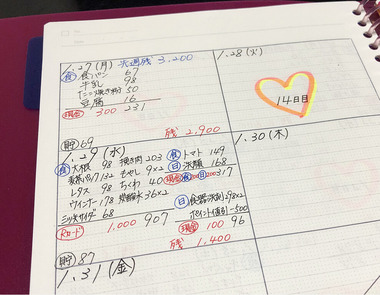 1.27(月) 次週残 3,200
食 食パン 67
牛乳 98
たこ焼き粉 50
豆腐 16
現金 300 231
残 2,900
1.28(火)
14日目
貯69
1.29(水)
食 大根 98 挽き肉 203 食 トマト 149
98 もやし 9×2 日 洗顔 168
レタス 98 ちくわ 40 現金 317
ウインナー 178 炭酸水 36×2
ミックスサイダー 68 日 食器洗剤 298×2
ポイント値引 -500
Rカード 1,000 907 現金 100 96
残 1,400
1.30(木)
貯87
1.31(金)